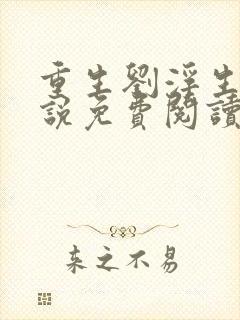 重生劉淫生
說免費閱讀
来之不易